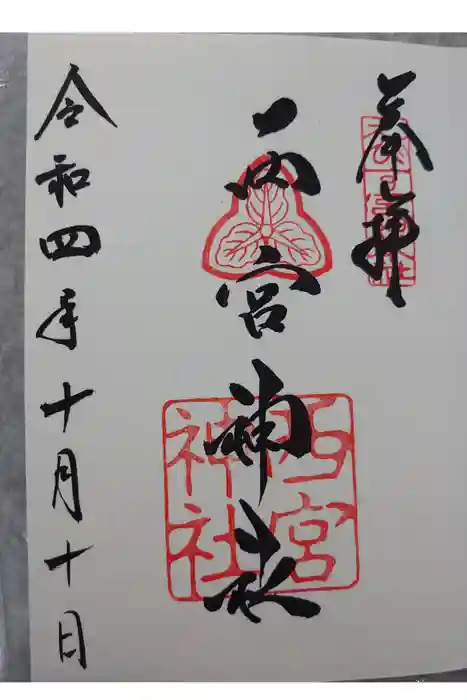 奉拝
西宮神社
西宮神社
令和四年十月十日